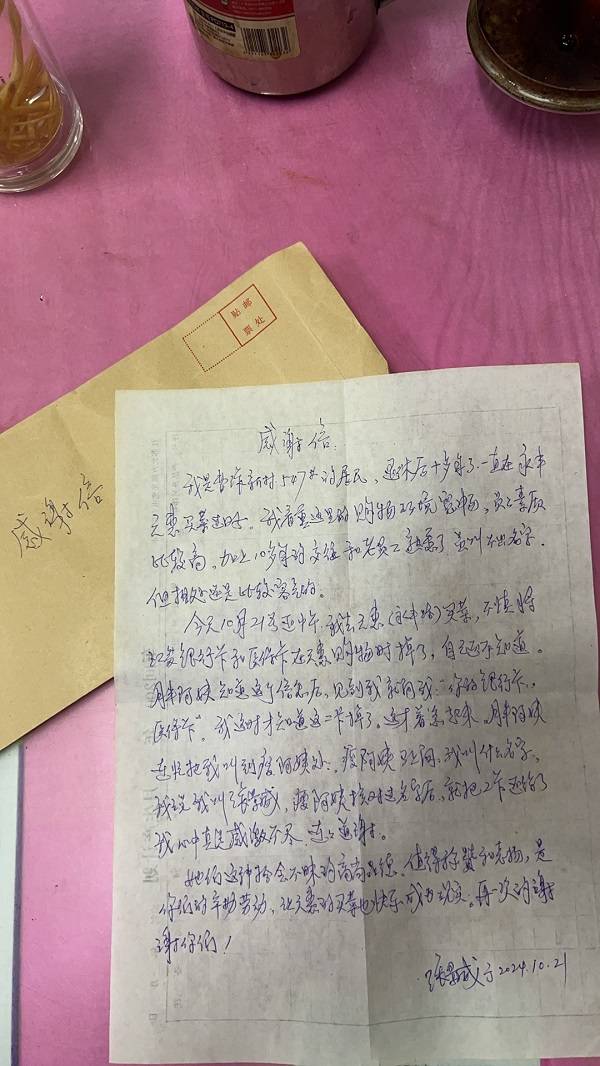 贴 邮
票 处
感谢信
感谢信.
我是曹杨新村547#的居民,退休后十多年了一直在永丰
元惠买菜过日子。我看重这里的购物环境宽畅,员工素质
比较高,加上10多年的交往和老员工熟悉了虽叫不出名字.
但相处还是比较客气的。
今天10月21号近中午,我去元惠(永丰路)买菜,不慎将
银行卡和医保卡在元惠购物时掉了,自己还不知道。
阿姨知道这个信息后,见到我就问我:"你的银行卡,
医保卡"。我这时才知道这二卡掉了。这才着急起来,阿姨
连忙把我叫到阿姨处,阿姨马上问,我叫什么名字,
我说我叫张,阿姨核对过名字后,就把二卡还给了
我心中真是感激不尽,连连道谢。
她们这种拾金不昧的高尚品德,值得称赞和表扬,是
你们的辛勤劳动,让元惠的买菜也快乐成为现实。再一次的谢
谢你们!
张 于2024.10.21